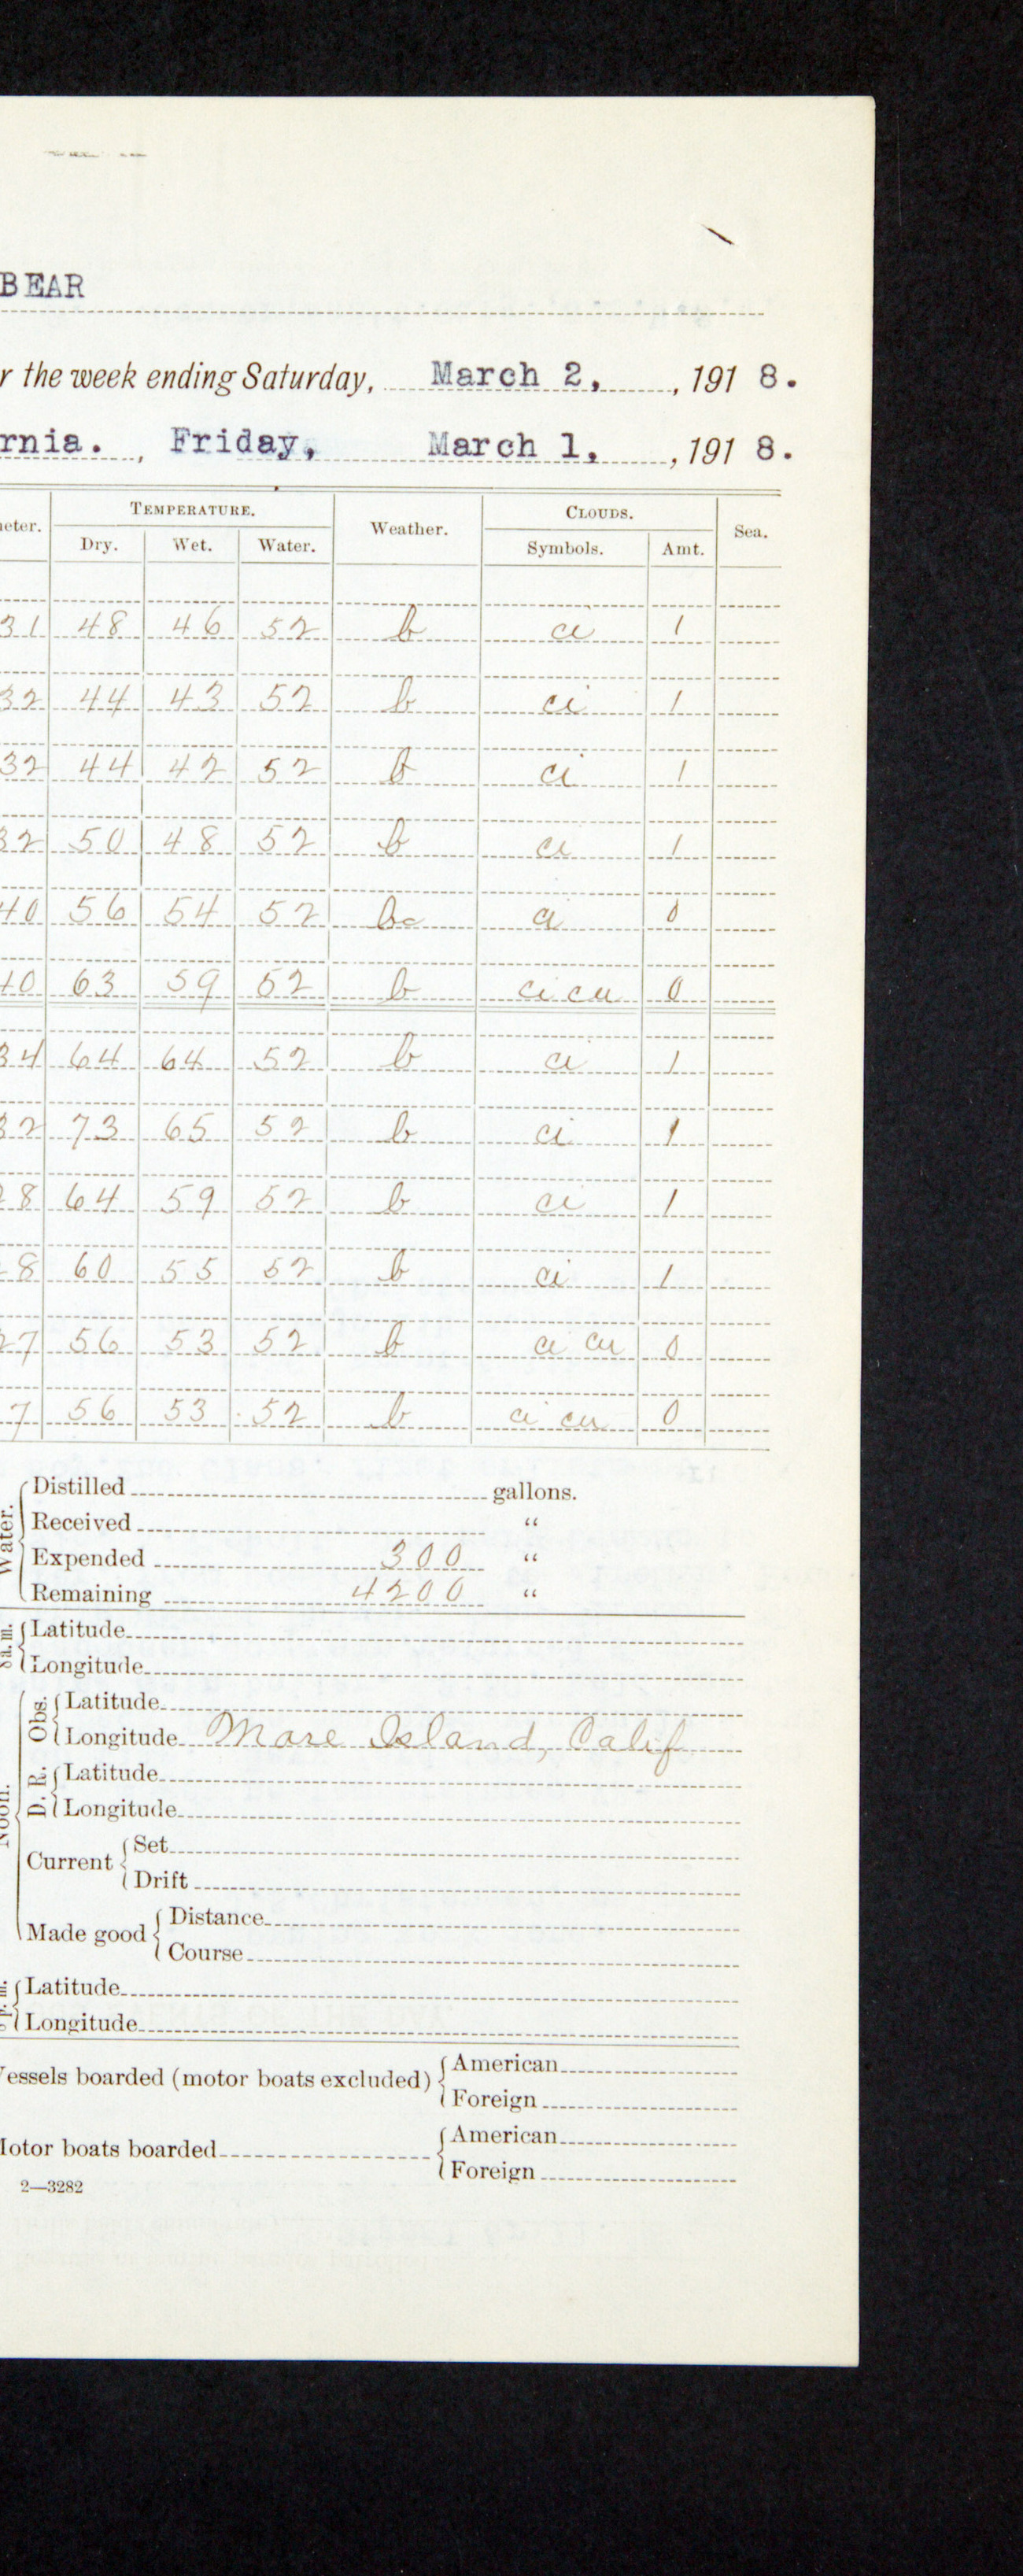 BEAR
r the week ending Saturday, March 2, , 191 8.
rnia. , Friday, March 1, , 191 8.
eter. TEMPERATURE. Weather. CLOUDS. Sea.
Dry. Wet. Water. Symbols. Amt.
31 48 46 52 b ci 1
32 44 43 52 b ci 1
32 44 42 52 b ci 1
32 50 48 52 b ci 1
40 56 54 52 bc ci 0
40 63 59 52 b ci cu 0
34 64 64 52 b ci 1
32 73 65 52 b ci 1
8 64 59 52 b ci 1
8 60 55 52 b ci 1
27 56 53 52 b ci cu 0
7 56 53 52 b ci cu 0
Water.
Distilled gallons.
Received “
Expended 300 “
Remaining 4200 “
8 a.m.
Latitude
Longitude
Noon.
Obs.
Latitude
Longitude Mare Island, Calif
D. R.
Latitude
Longitude
Current
Set
Drift
Made good
Distance
Course
p. m.
Latitude
Longitude
essels boarded (motor boats excluded) American
Foreign
otor boats boarded American
Foreign
2—3282